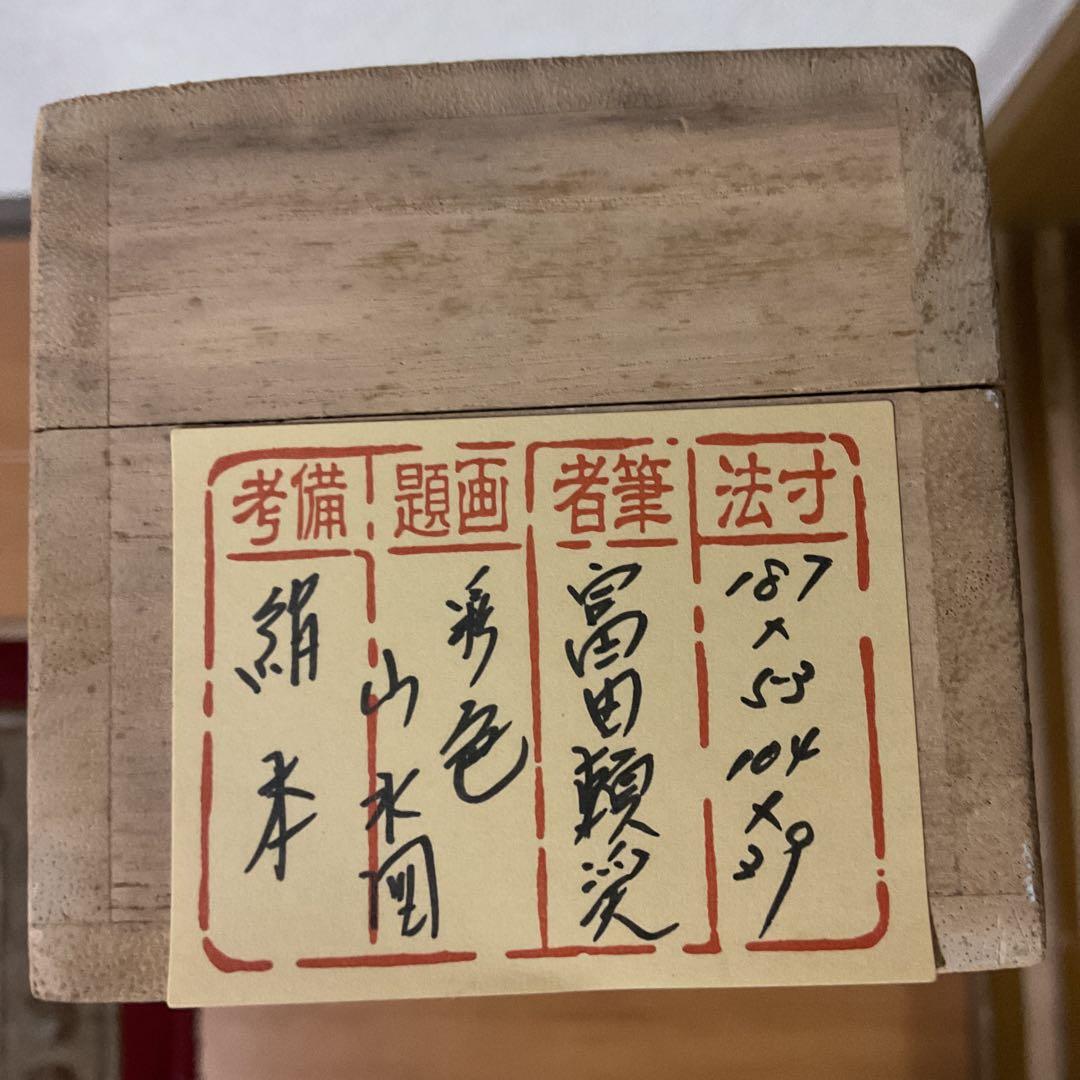 寸法
187
×
53
104
×
39
筆者
富田
画題
彩色
山水図
備考
絹本